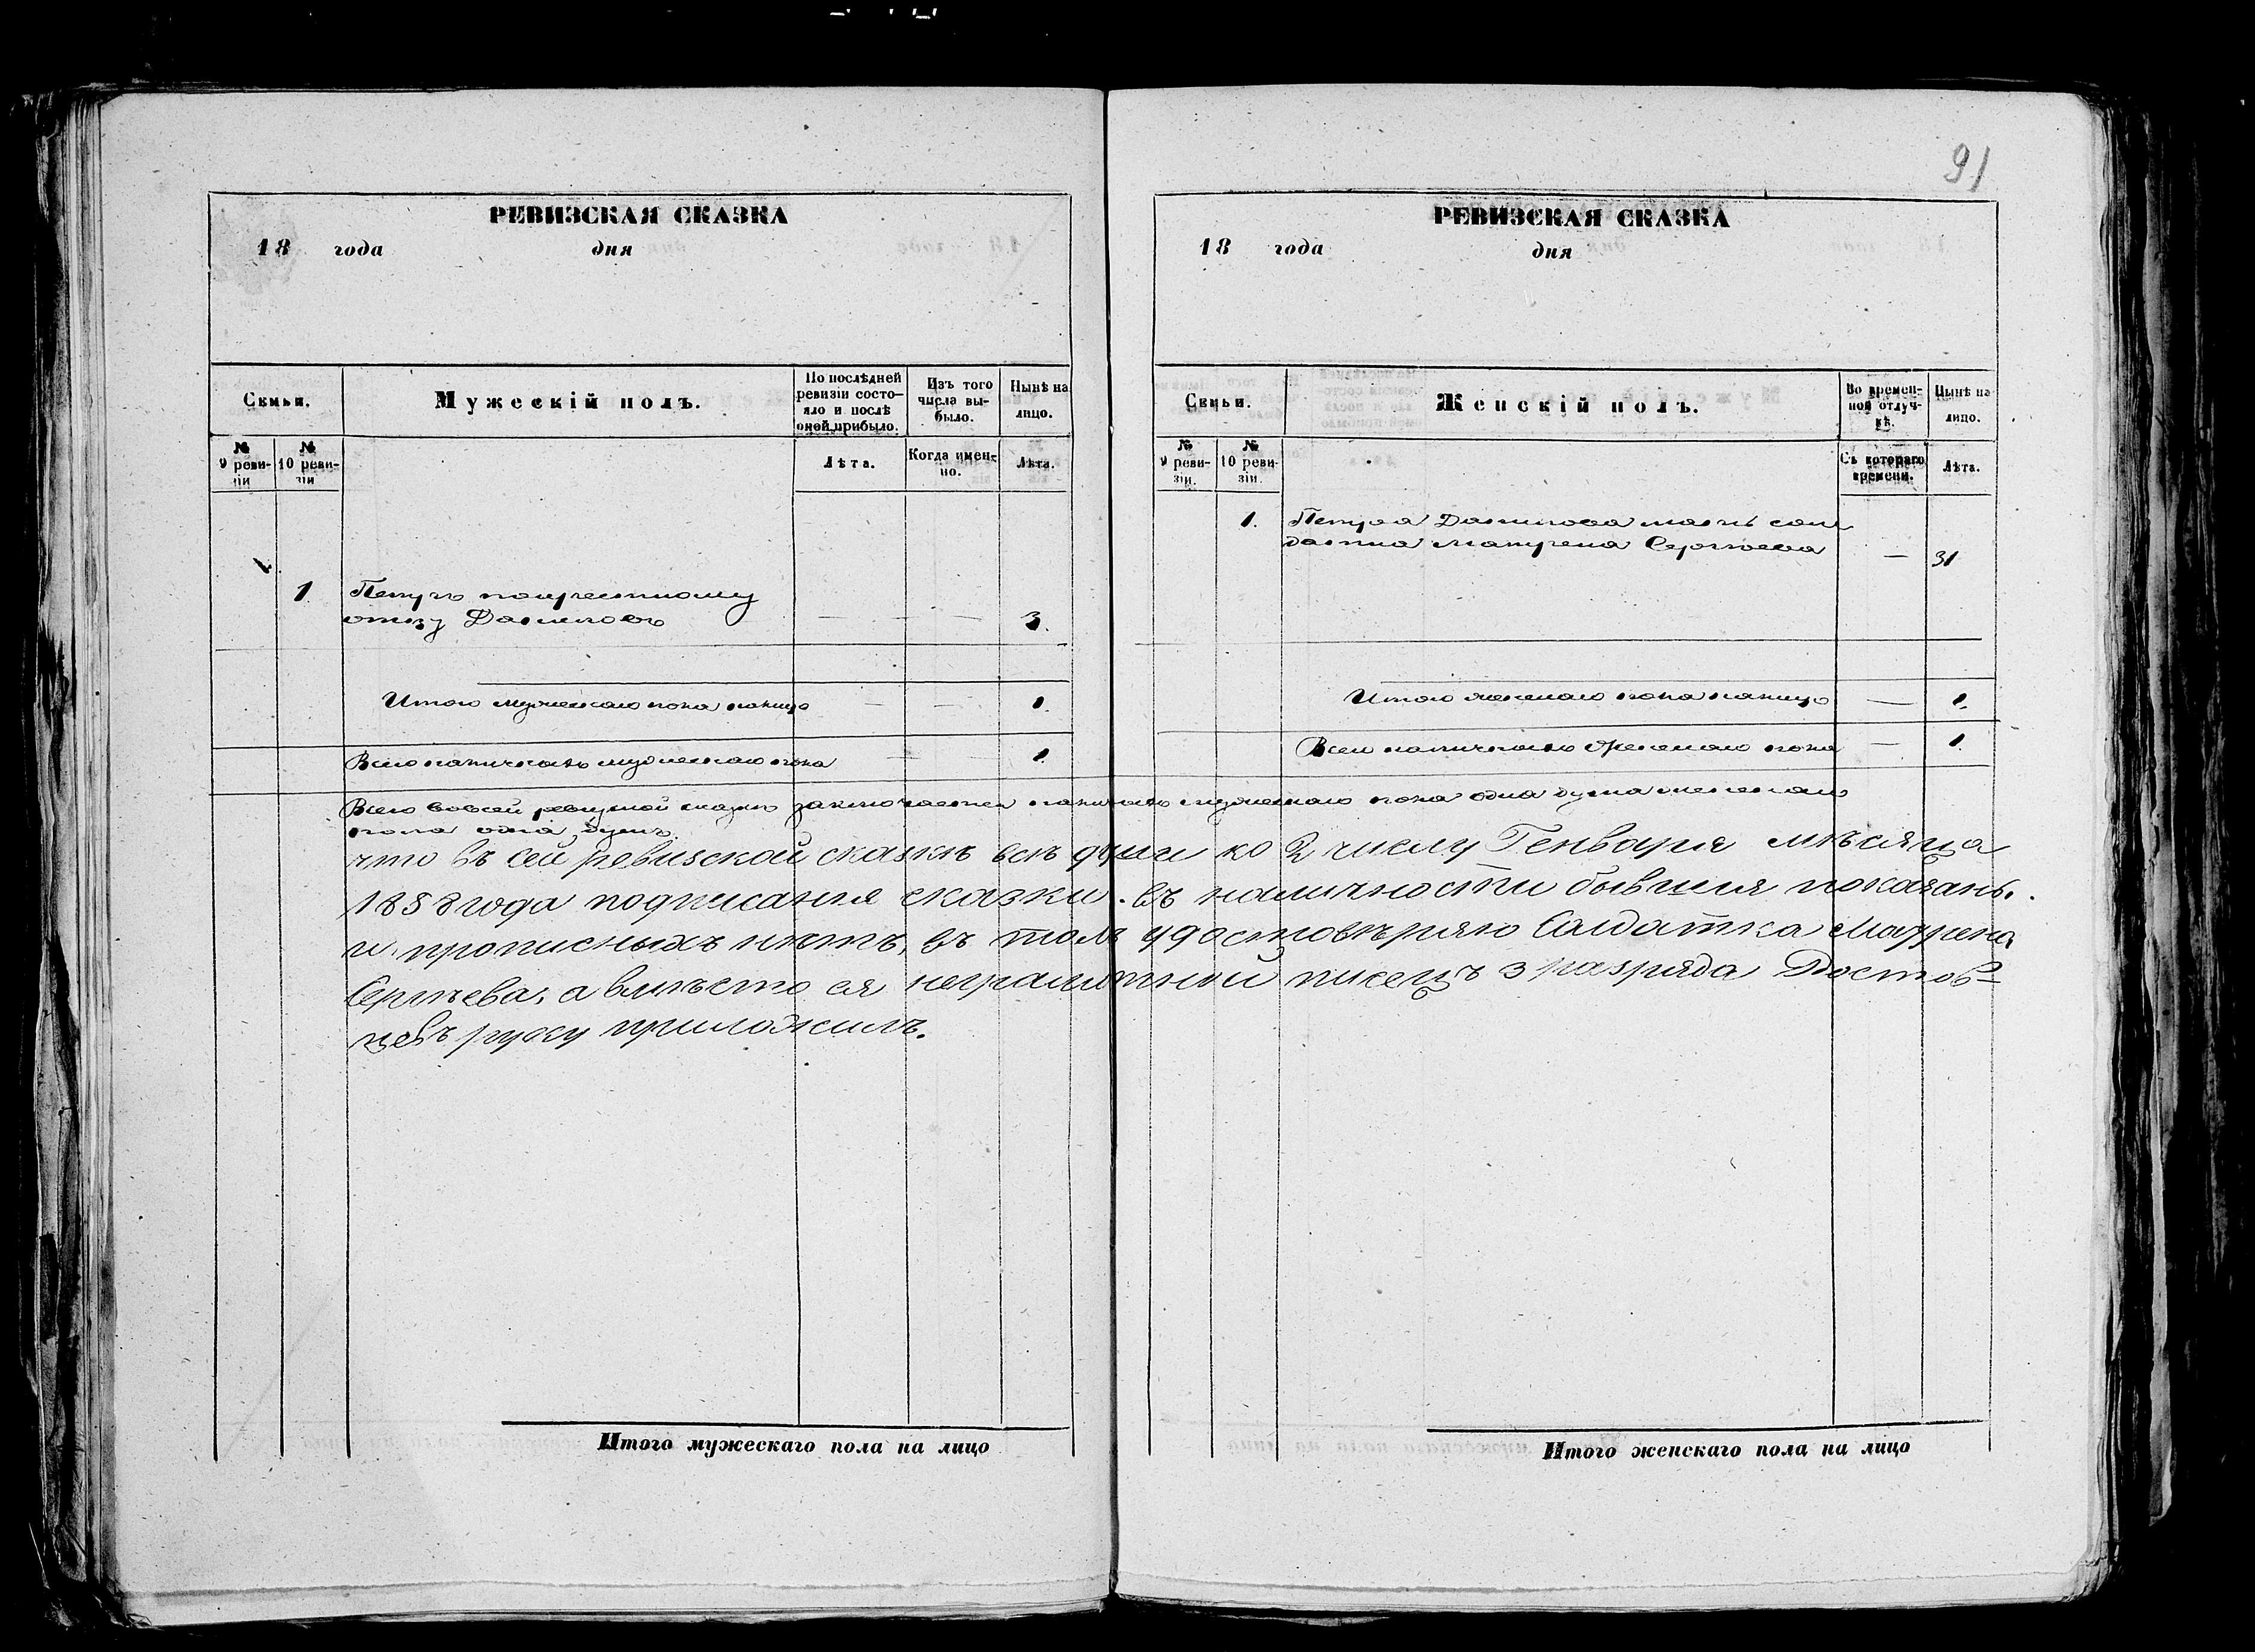 91
РЕВИЗСКАЯ СКАЗКА
18 года дня
Семьи.
Мужескій полъ.
По послѣдней ревизіи состояло и послѣ оной прибыло.
Изъ того числа выбыло.
Нынѣ на лицо.
№ 9 ревизіи
№ 10 ревизіи
Лѣта.
Когда именно.
Лѣта.
1 Петръ по крестному
отцу Даниловъ — — 3.
Итого мужескаго пола налицо — — 1.
Всего наличныхъ мужескаго пола — 1
РЕВИЗСКАЯ СКАЗКА
18 года дня
Семьи.
Женскій полъ.
Во временной отлучкѣ.
Нынѣ на лицо.
№ 9 ревизіи.
№ 10 ревизіи.
Съ котораго времени.
Лѣта.
1. Петра Данилова мать сол
датка Матрена Сергѣева — 31
Итого женскаго пола налицо — 1.
Всего наличныхъ женскаго пола — 1.
Всего во всей ревизкой сказкѣ заключается наличныхъ мужескаго пола одна душа женскаго
пола одна душа.
что въ сей ревизской сказкѣ всѣ души ко 2 числу Генваря мѣсяца
1858 года подписанія сказки. въ наличности бывшія показаны.
и прописныхъ нѣтъ, въ томъ удостовѣряю Солдатка Матрена
Сергѣева, а вмѣсто ея неграмотной писецъ 3 разряда Достов-
цевъ руку приложилъ.
Итого мужескаго пола на лицо
Итого женскаго пола на лицо